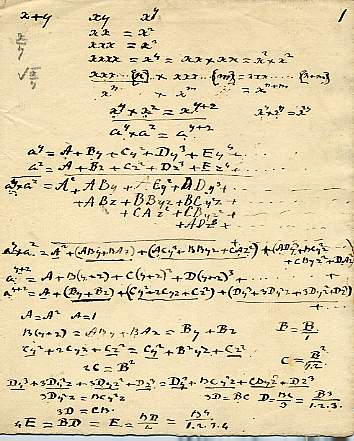 x+y xy x^y 1
x/y xx = x²
xxx = x³
√x/y xxxx = x⁴ = xx×xx = x²×x²
xxx... [n] × xxx... [m] = xxx..... [n+m]
xⁿ × xᵐ = xⁿ⁺ᵐ
x^y × x^z = x^{y+z}
a^y × a^z = a^{y+z}
a^y = A + By + Cy² + Dy³ + Ey⁴ .
a^z = A + Bz + Cz² + Dz³ + Ez⁴ .
a^y×a^z = A² + ABy + ACy² + ADy³ +
+ABz + BByz + BCy²z
+CAz² + CByz²
+ADz³
a^y×a^z = A² + (ABy+BAz) + (ACy²+BByz+CAz²) + (ADy³+BCy²z
+CByz²+DAz³)
a^{y+z} = A + B(y+z) + C(y+z)² + D(y+z)³ +
a^{y+z} = A + (By+Bz) + (Cy²+2Cyz+Cz²) + (Dy³+3Dy²z+3Dyz²+Dz³)
A = A² A = 1
B(y+z) = ABy + BAz = By + Bz B = B/1
Cy²+2Cyz+Cz² = Cy²+B²yz+Cz²
2C = B² C = B²/1.2
Dy³+3Dy²z+3Dyz²+Dz³ = Dy³+BCy²z+CByz²+Dz³
3Dy²z = BCy²z 3D = BC D = BC/3 = B³/1.2.3
3D = CB
4E = BD = E = BD/4 = B⁴/1.2.3.4